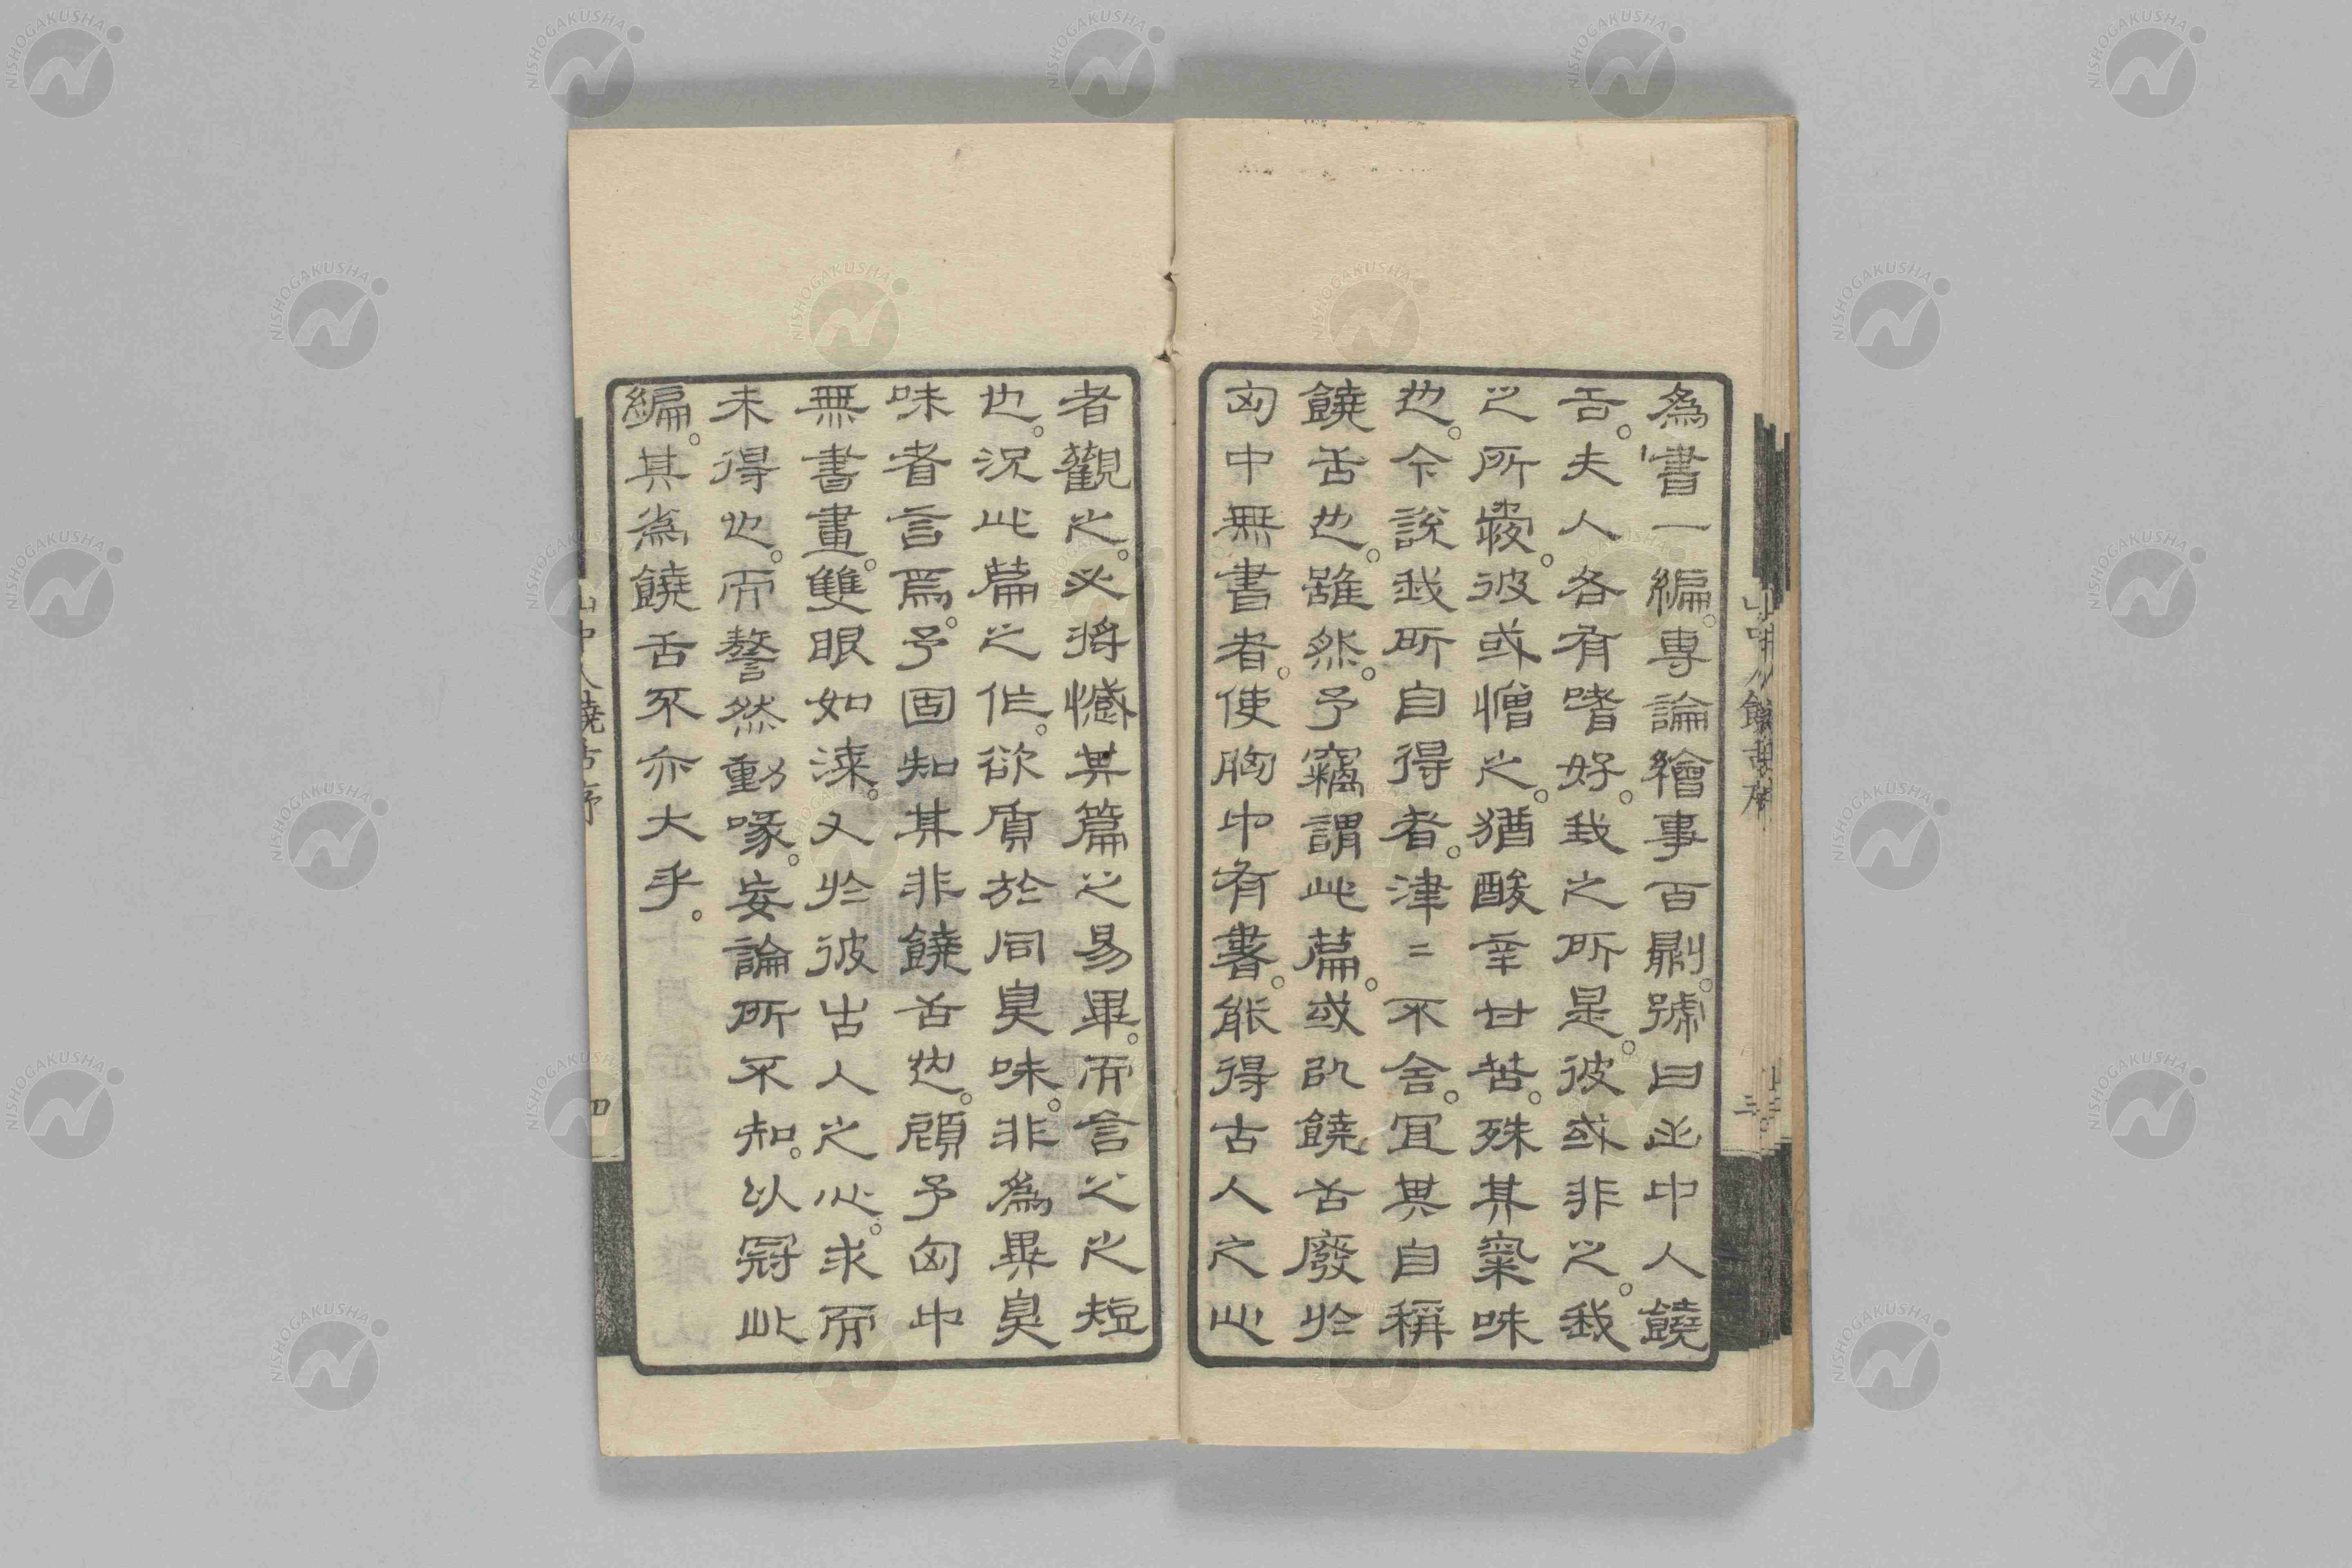 為書一編。專論繪事百劚。號曰山中人饒
舌。夫人各有嗜好。我之所是。彼或非之。我
之所愛。彼或憎之。猶酸辛甘苦。殊其氣味
也。今說我所自得者。津〻不舍。宜其自稱
饒舌也。雖然。予竊謂此篇。或以饒舌廢於
匈中無書者。使胸中有書。能得古人之心
者觀之。必將憾其篇之易畢。而言之之短
也。況此篇之作。欲質於同臭味。非為異臭
味者言焉。予固知其非饒舌也。顧予匈中
無書畫。雙眼如漆。又於彼古人之心。求而
未得也。而謷然動喙。妄論所不知。以冠此
編。其為饒舌不亦大乎。
山中人饒舌序
三
山中人饒舌序
四
NISHOGAKUSHA